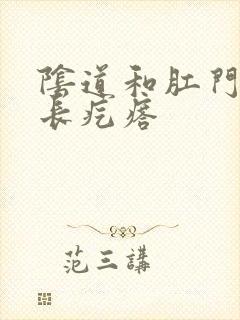 陰道和肛門
長疙瘩
范三講